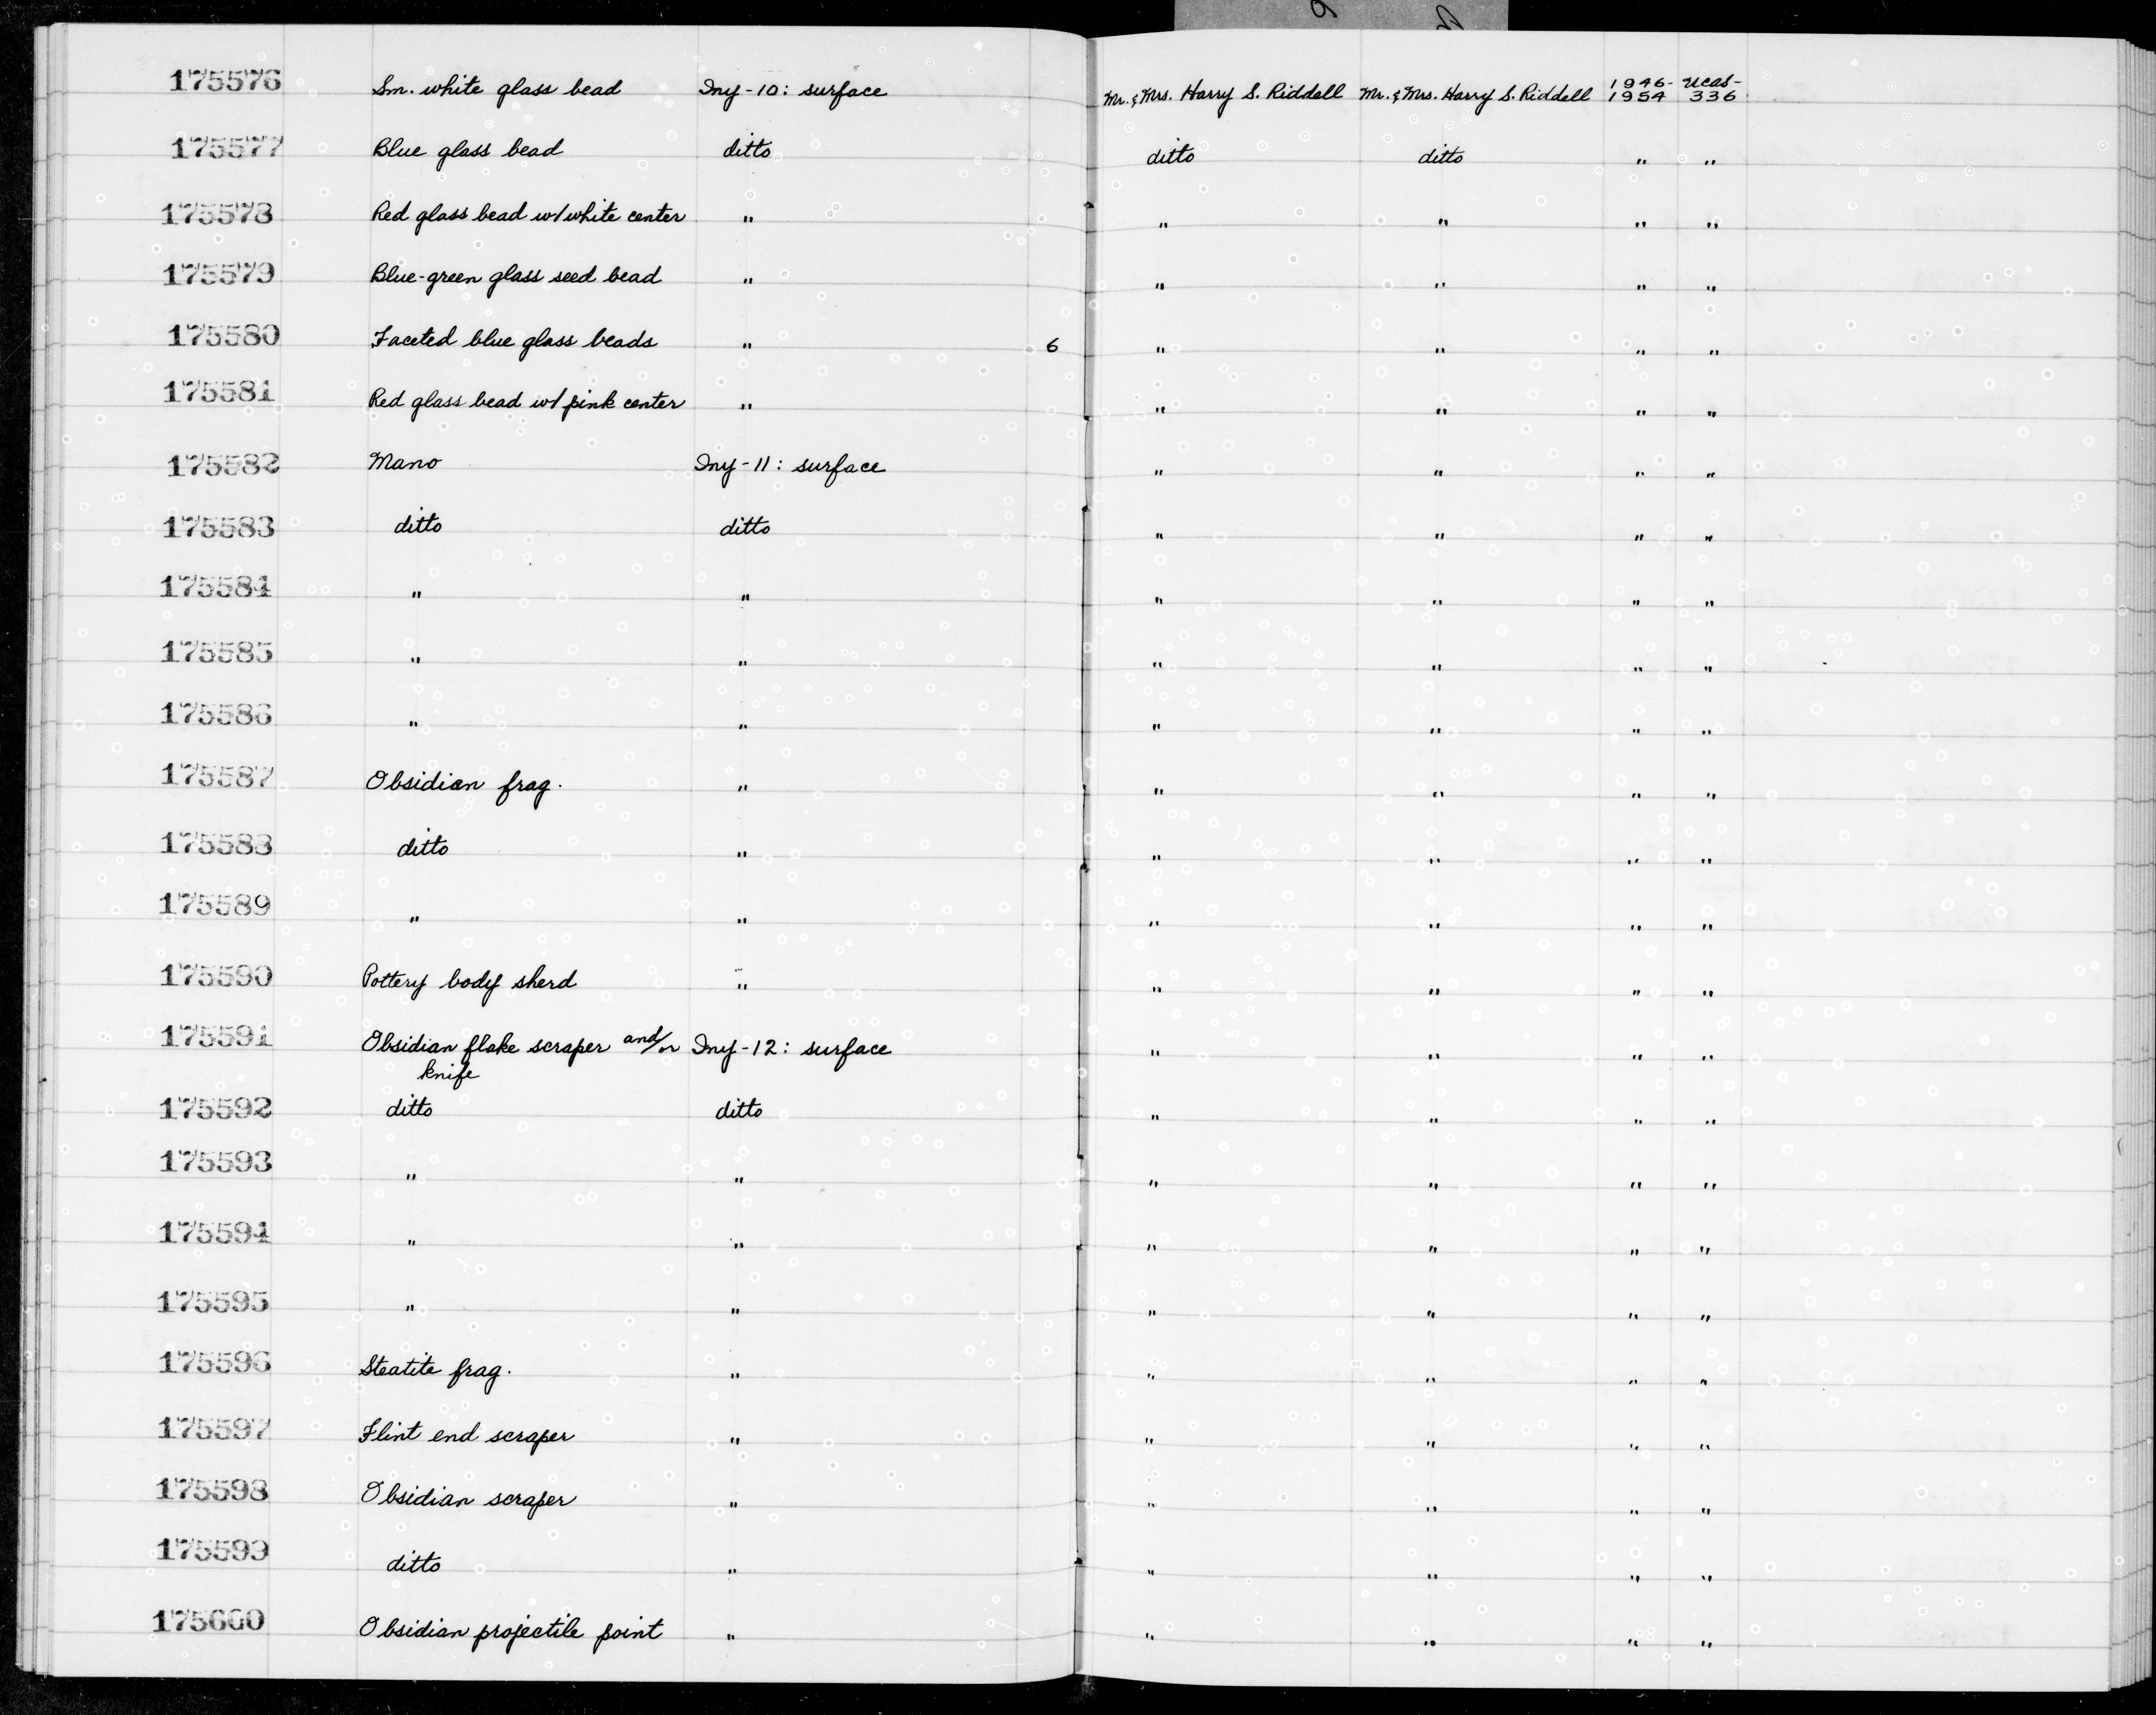 175576 Sm. white glass bead Iny-10: surface Mr. & Mrs. Harry S. Riddell Mr. & Mrs. Harry S. Riddell 1946-1954 UCAS-336
175577 Blue glass bead ditto ditto ditto " "
175578 Red glass bead w/white center " " " " "
175579 Blue-green glass seed bead " " " " "
175580 Faceted blue glass beads " 6 " " " "
175581 Red glass bead w/pink center " " " " "
175582 Mano Iny-11: surface " " " "
175583 ditto ditto " " " "
175584 " " " " " "
175585 " " " " " "
175586 " " " " " "
175587 Obsidian frag. " " " " "
175588 ditto " " " " "
175589 " " " " " "
175590 Pottery body sherd " " " " "
175591 Obsidian flake scraper and/or Iny-12: surface " " " "
knife
175592 ditto ditto " " " "
175593 " " " " " "
175594 " " " " " "
175595 " " " " " "
175596 Steatite frag. " " " " "
175597 Flint end scraper " " " " "
175598 Obsidian scraper " " " " "
175599 ditto " " " " "
175600 Obsidian projectile point " " " " "